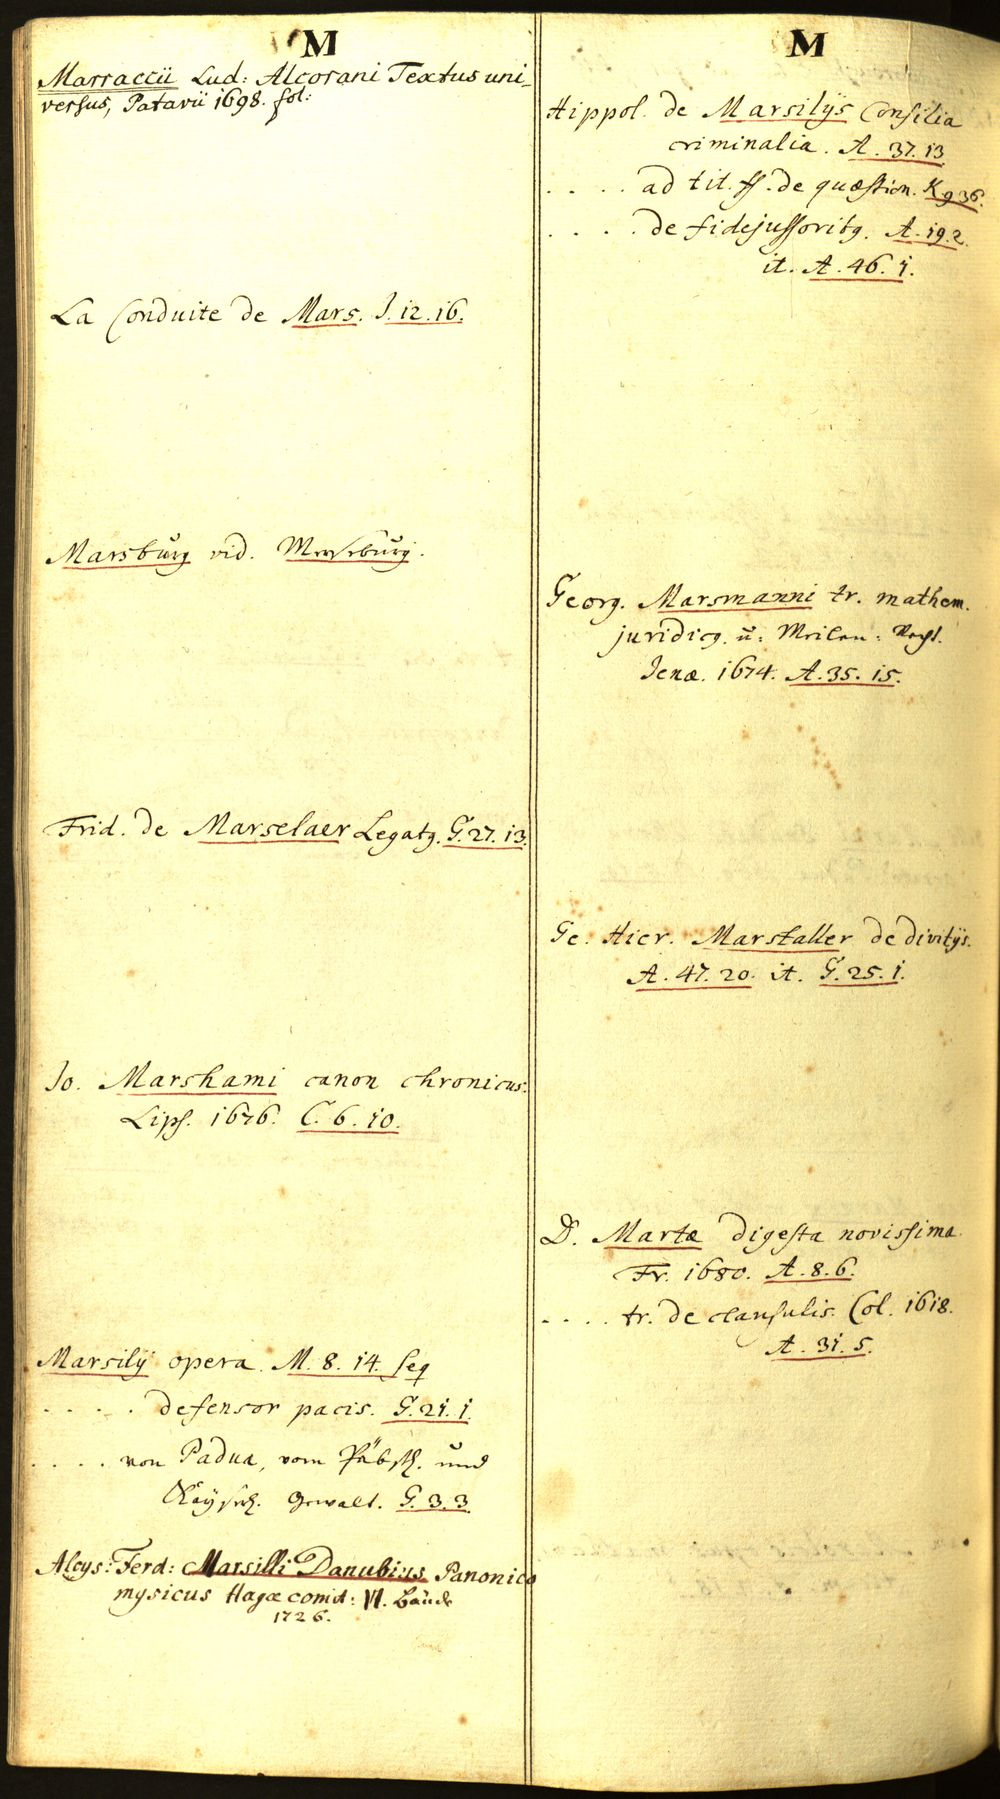 M
Marraccii Lud: Alcorani Textus uni-
versus, Patavii 1698. fol:
La Conduite de Mars. I. 12. 16.
Marsburg vid. Merseburg.
Frid. de Marselaer Legatq. G. 27. 13.
Jo. Marshami canon chronicus.
Lips. 1676. C. 6. 10.
Marsilij opera. M. 8. 14. seq
. . . . defensor pacis. G. 21. 1.
. . . . von Padua, vom Päbstl. und
Kaÿserl. Gewalt. G. 3. 3.
Aloys: Ferd: Marsilli Danubius Panonico
mysicus Hagæ comit: VI. Bände
1726.
M
Hippol. de Marsilijs Consilia
criminalia. A. 37. 13
. . . . ad tit. ff. de quæstion. K. 9 36.
. . . . de fidejussoribq. A. 19. 2.
it. A. 46. 1.
Georg. Marsmanni tr. mathem.
juridicq. ü: Meilen: Recht.
Jenæ. 1674. A. 35. 15.
Ge. Hier. Marstaller de divitijs.
A. 47. 20. it. G. 25. 1.
D. Martæ digesta novissima
Fr. 1680. A. 8. 6.
. . . . tr. de clausulis. Col. 1618.
A. 31. 5.